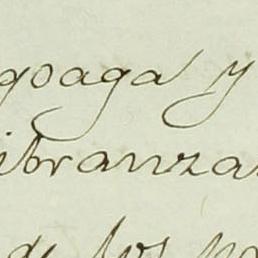 goaga y
ibranza
de los